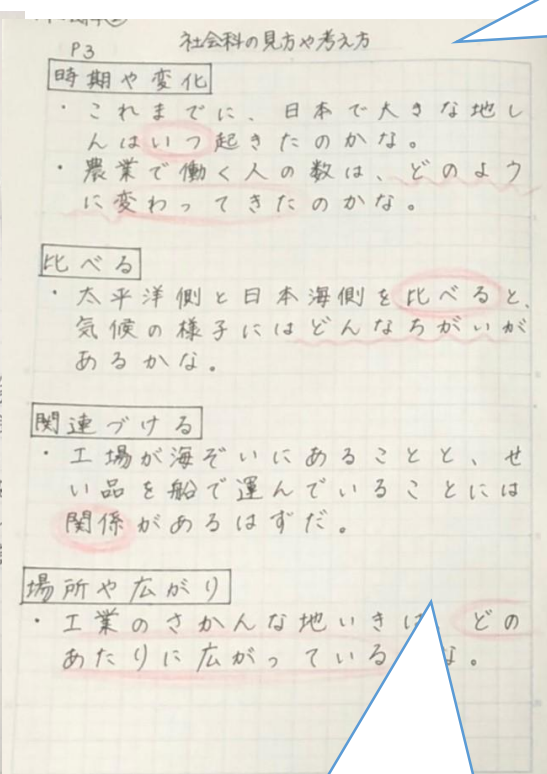 P3
社会科の見方や考え方
時期や変化
・これまでに、日本で大きな地し
んはいつ起きたのかな。
・農業で働く人の数は、どのよう
に変わってきたのかな。
比べる
・太平洋側と日本海側を比べると、
気候の様子にはどんなちがいが
あるかな。
関連づける
・工場が海ぞいにあることと、せ
い品を船で運んでいることには
関係があるはずだ。
場所や広がり
・工業のさかんな地いきは どの
あたりに広がっている な。